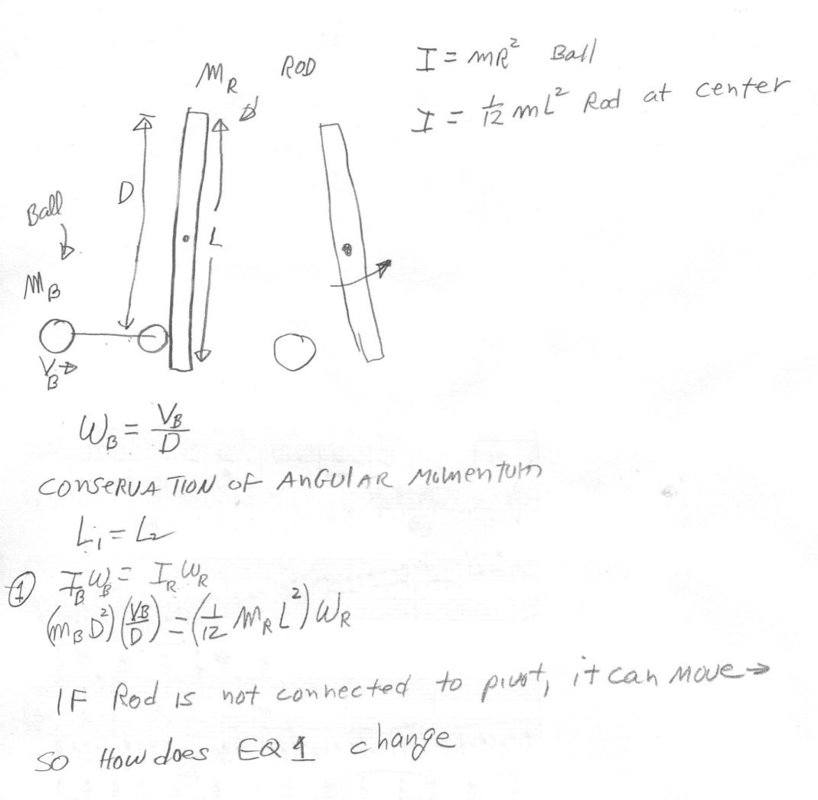 M_R ROD
I = mR² Ball
I = 1/12 mL² Rod at center
D
L
Ball
M_B
V_B →
W_B = V_B/D
CONSERVATION OF ANGULAR MOMENTUM
L₁ = L₂
① I_B W_B = I_R W_R
(m_B D²)(V_B/D) = (1/12 M_R L²) W_R
IF Rod is not connected to pivot, it can move →
SO How does EQ 1 change